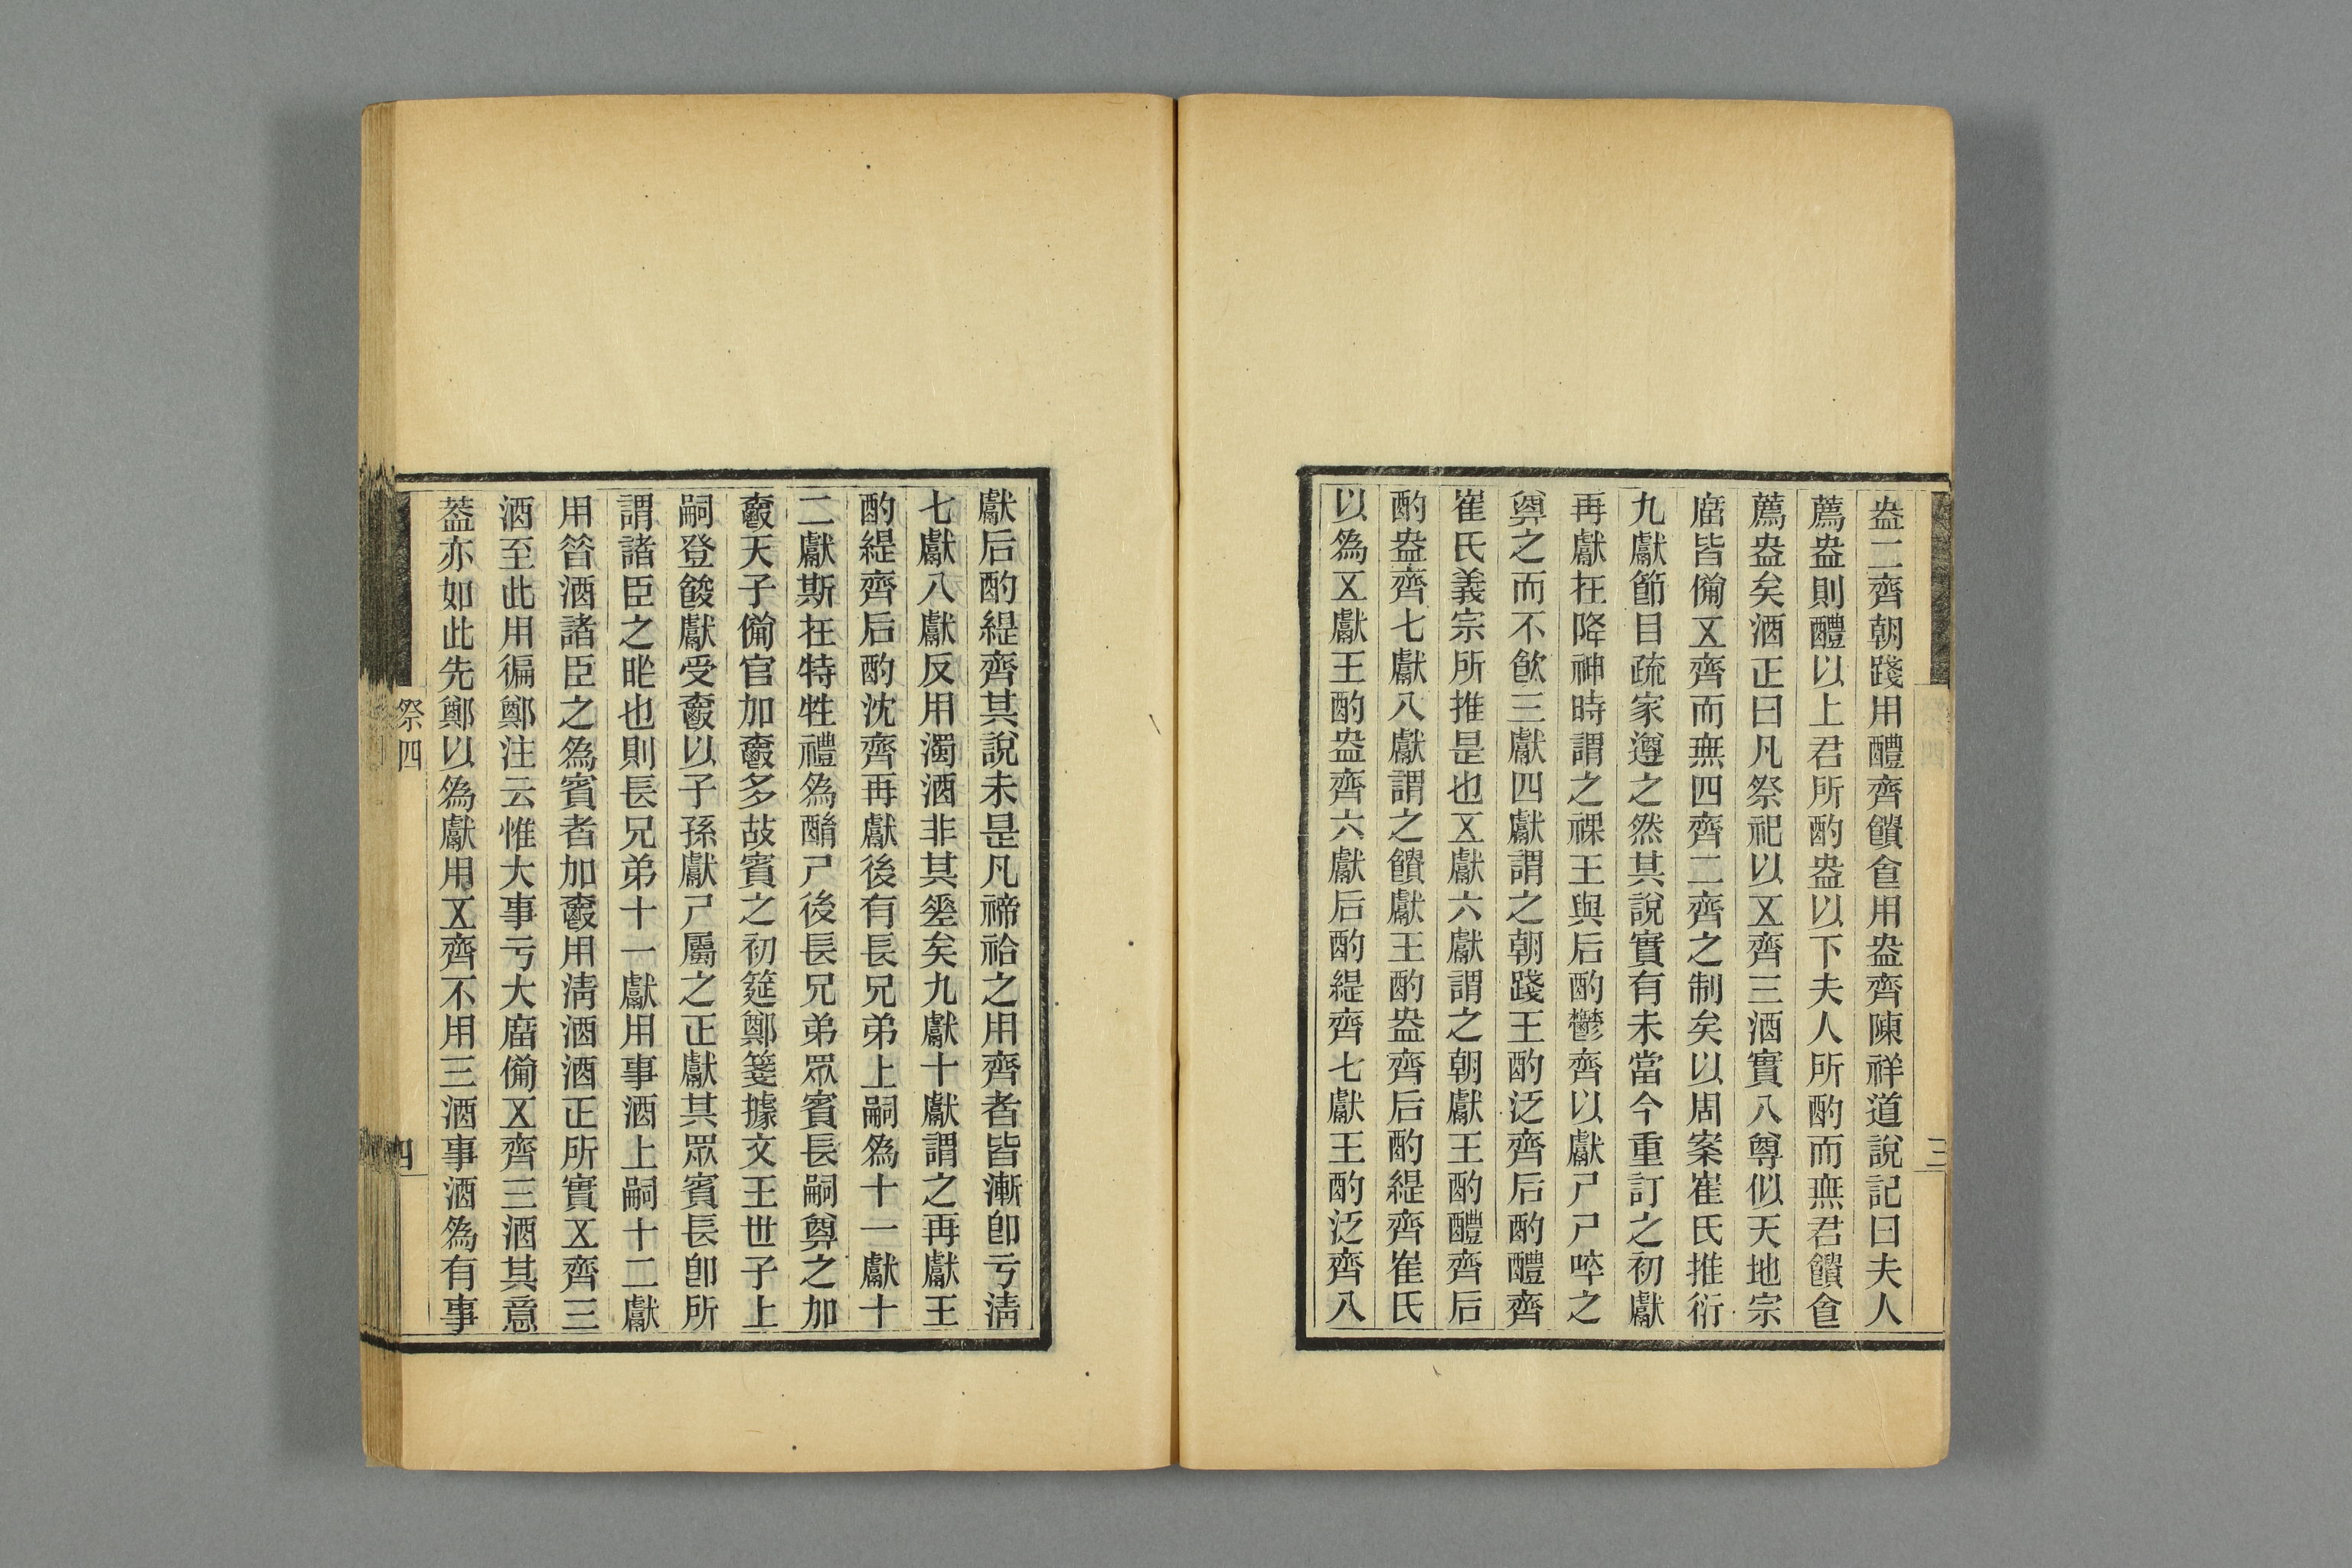 盎二齊朝踐用醴齊饋食用盎齊陳祥道說記曰夫人
薦盎則醴以上君所酌盎以下夫人所酌而無君饋食
薦盎矣酒正曰凡祭祀以五齊三酒實八尊似天地宗
庿皆備五齊而無四齊二齊之制矣以周案崔氏推衍
九獻節目疏家遵之然其說實有未當今重訂之初獻
再獻在降神時謂之祼王與后酌鬱齊以獻尸尸啐之
奠之而不飮三獻四獻謂之朝踐王酌泛齊后酌醴齊
崔氏義宗所推是也五獻六獻謂之朝獻王酌醴齊后
酌盎齊七獻八獻謂之饋獻王酌盎齊后酌緹齊崔氏
以為五獻王酌盎齊六獻后酌緹齊七獻王酌泛齊八
三
獻后酌緹齊其說未是凡禘祫之用齊者皆漸卽亏淸
七獻八獻反用濁酒非其䇂矣九獻十獻謂之再獻王
酌緹齊后酌沈齊再獻後有長兄弟上嗣為十一獻十
二獻斯在特牲禮為酳尸後長兄弟眾賓長嗣奠之加
𤔲天子備官加𤔲多故賓之初筵鄭箋據文王世子上
嗣登餕獻受𤔲以子孫獻尸屬之正獻其眾賓長卽所
謂諸臣之昨也則長兄弟十一獻用事酒上嗣十二獻
用昝酒諸臣之為賓者加𤔲用淸酒酒正所實五齊三
酒至此用徧鄭注云惟大事亏大庿備五齊三酒其意
葢亦如此先鄭以為獻用五齊不用三酒事酒為有事
祭四
四